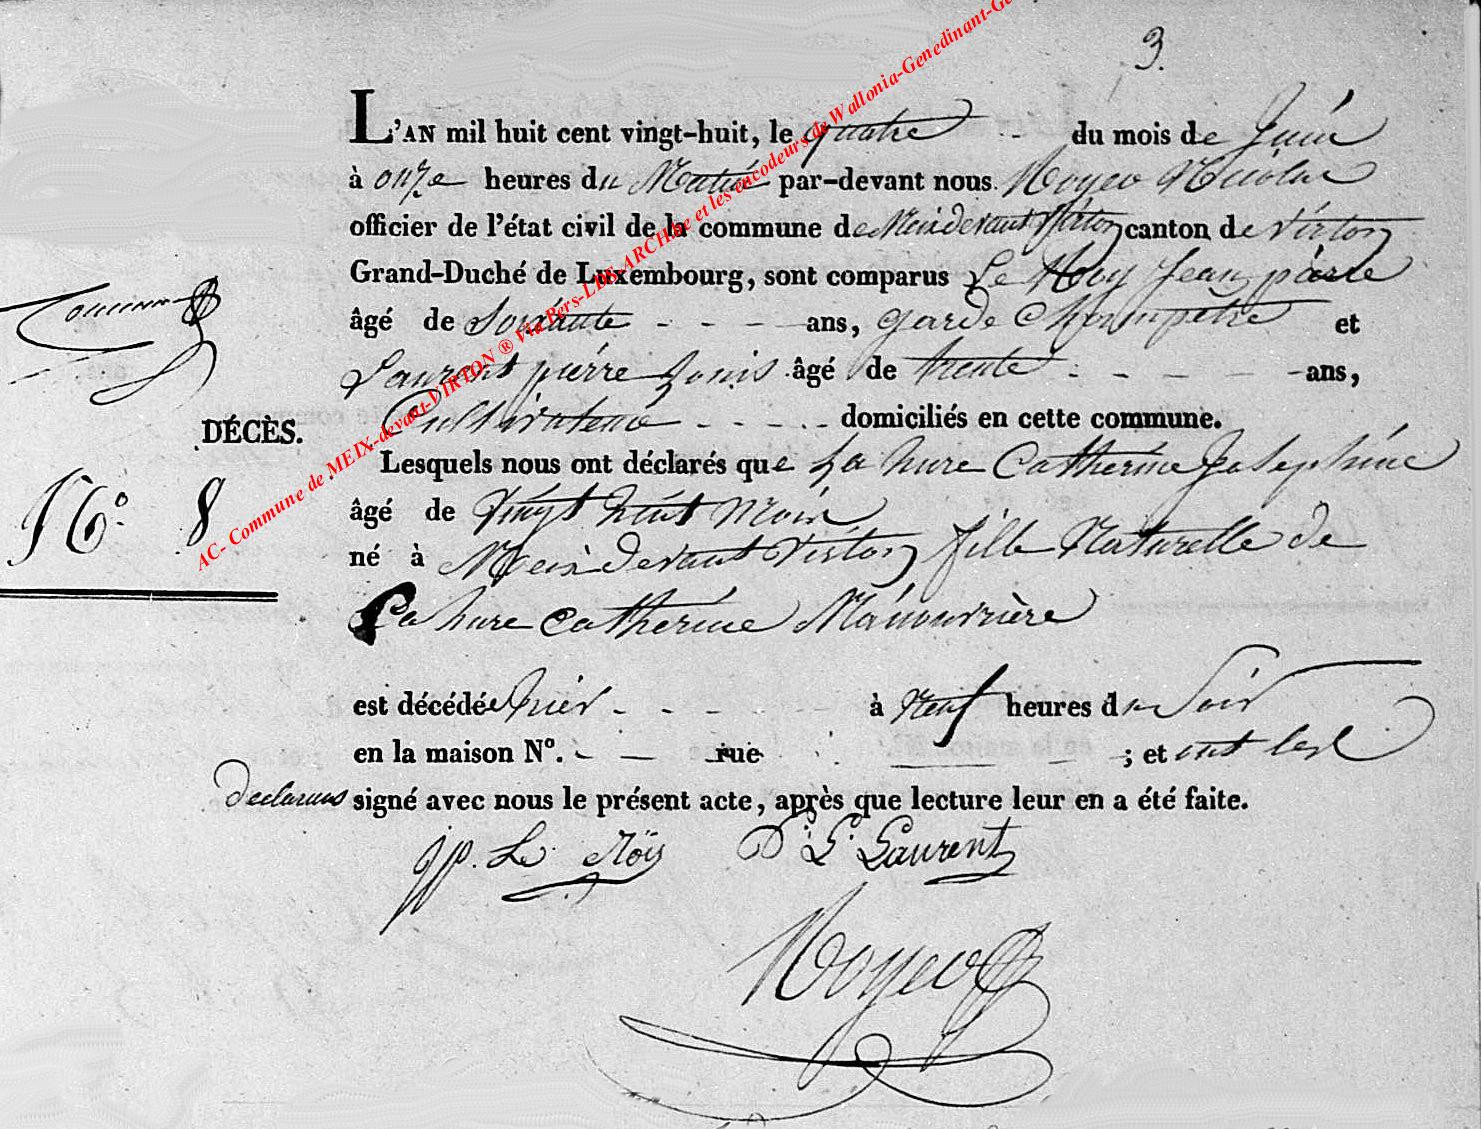 3.
L'AN mil huit cent vingt-huit, le quatre du mois de Juin
à onze heures du Matin par-devant nous Noyer Nicolas
officier de l'état civil de la commune de Meix devant Virton canton de Virton
Grand-Duché de Luxembourg, sont comparus Le Roy Jean pierre
âgé de Soixante ans, garde Champêtre et
Laurent pierre Louis âgé de trente ans,
Cultivateur domiciliés en cette commune.
DÉCÈS.
Lesquels nous ont déclarés que La hure Catherine Josephine
N° 8
âgé de Vingt huit Mois
né à Meix devant Virton fille Naturelle de
La hure Catherine Manouvrière
est décédée hier à Neuf heures du Soir
en la maison N°. rue ; et ont les
declarans signé avec nous le présent acte, après que lecture leur en a été faite.
jp. Le Röy P. L. Laurent
Noyer
AC- Commune de MEIX-devant-VIRTON ® Via Pers-LDS-ARCHbe et les encodeurs de Wallonia-Genedinant-Ge